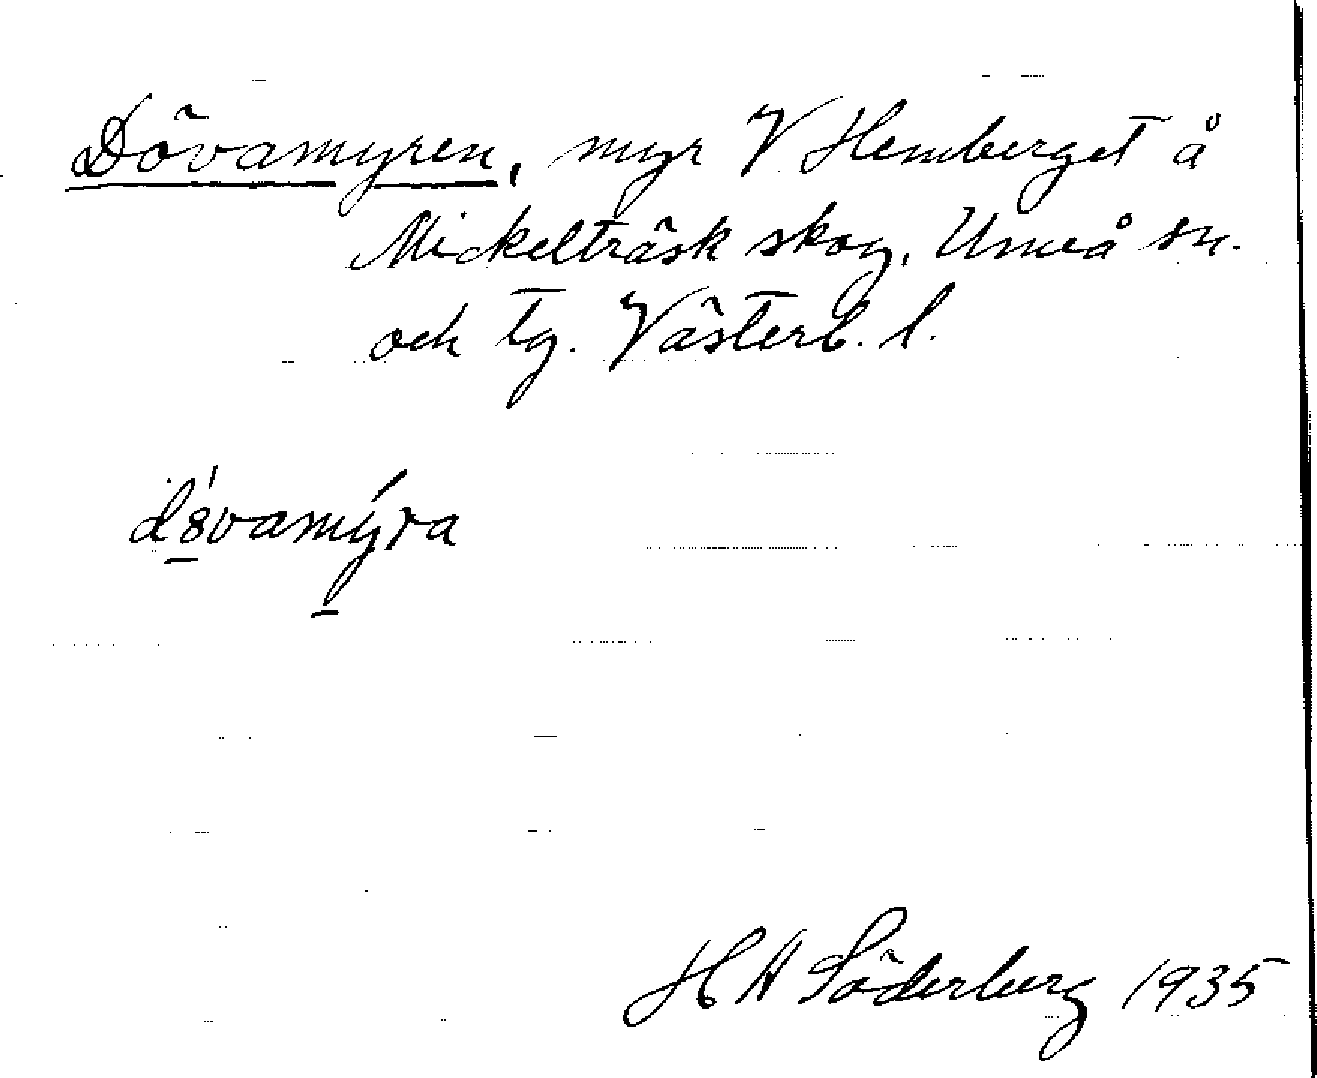 Dövamyren, myr V Hemberget å
Mickelträsk skog, Umeå sn.
och tg. Västerb. l.
d8́vamýra
H A Söderberg 1935